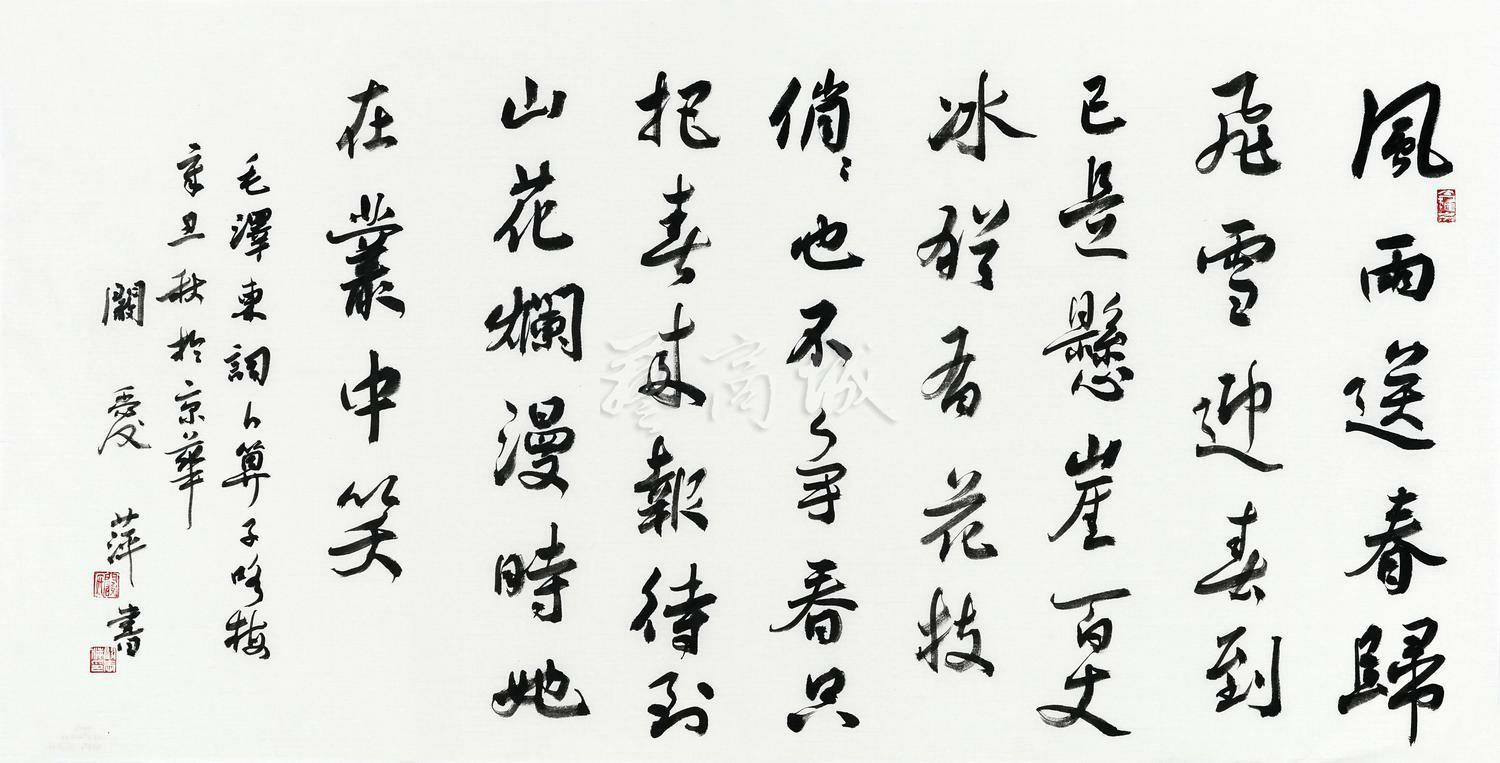 風雨送春歸
飛雪迎春到
已是懸崖百丈
冰猶有花枝
俏〻也不争春只
把春来報待到
山花爛漫時她
在叢中笑
毛澤東詞卜算子咏梅
辛丑秋於京華
闞愛萍書
藝商城